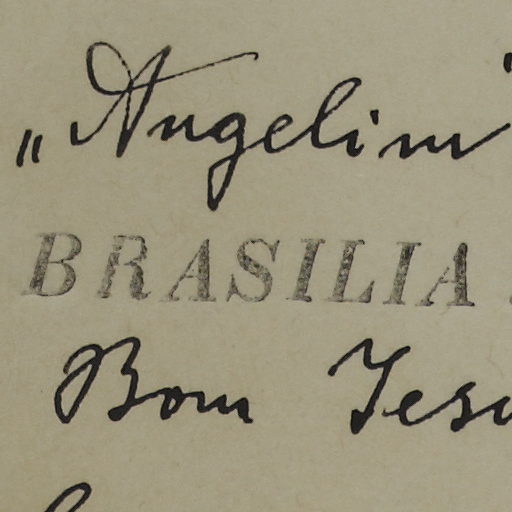 „Angelim"
BRASILIA
Bom Jesu